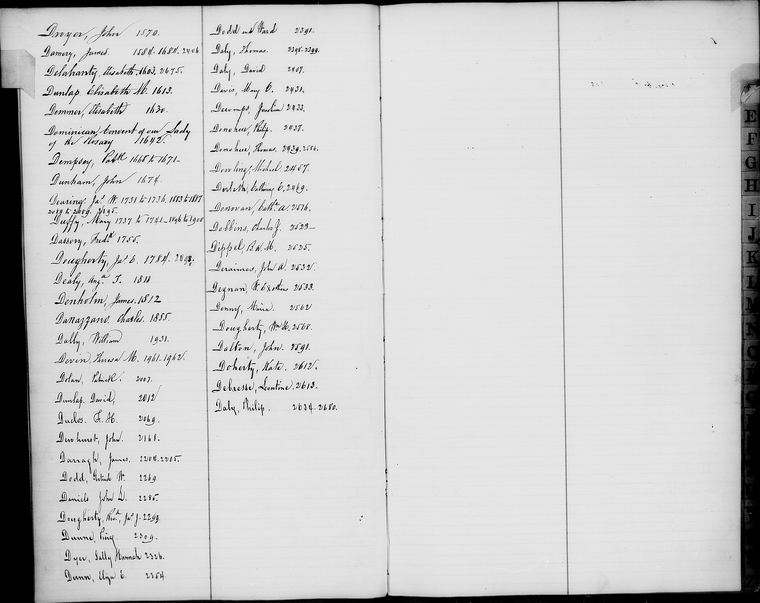 Dwyer, John 1570.
Damery, James. 1584. 1684. 2406
Delahanty, Elisabeth. 1603. 2675.
Dunlap Elisabeth M. 1613.
Demner, Elisabeth 1630.
Dominican Convent of our Lady
of the Rosary 1642.
Dempsey, Patk 1665 to 1671-
Dunham, John 1674.
Dearing, Jas W. 1731 to 1736. 1883 to 1887
Duffy, Mary 1737 to 1741 - 1896 to 1900
Dassory, Fredk 1755.
Dougherty, Jas E. 1784.
Dealy, Aug. T. 1811
Denholm, James. 1812
Danazzano. Charles. 1855.
Dally, William 1931.
Devin, Theresa M. 1961. 1962.
Dolan, Patrick. 2007.
Dunlap. David, 2012
Duclos. F. H. 2069.
Dewhurst, John 2161.
Darragh, James. 2204. 2205.
Dodd, Gertrude W. 2269
Daniels John L. 2285.
Dougherty, Revd. Jas J. 2299.
Dunne, 2309.
Dyer, Sally Hannah 2326.
Dunn, Eliza E. 2364.
Dodd and Ward 2391.
Daly, Thomas. 2398. 2399.
Daly, David 2407.
Davis, Mary E. 2431.
2433.
Donohue, Philip. 2437.
Donohue, Thomas. 2439. 2556.
Dowling, Michael 2457.
Catharine E. 2469.
Donovan, Cathe A. 2516.
Dobbins, Charles J. 2523-
Dippel, B. A. M. 2525.
John A. 2532.
Degnan, W. E & other 2533.
Denny, Maria 2562
Dougherty, Wm H. 2565.
Dalton, John. 2591.
Doherty, Kate. 2612.
Debesse, Leontine. 2613.
Daly, Philip. 2634. 2650.
E
F
G
H
I
J
K
L
M
N
O